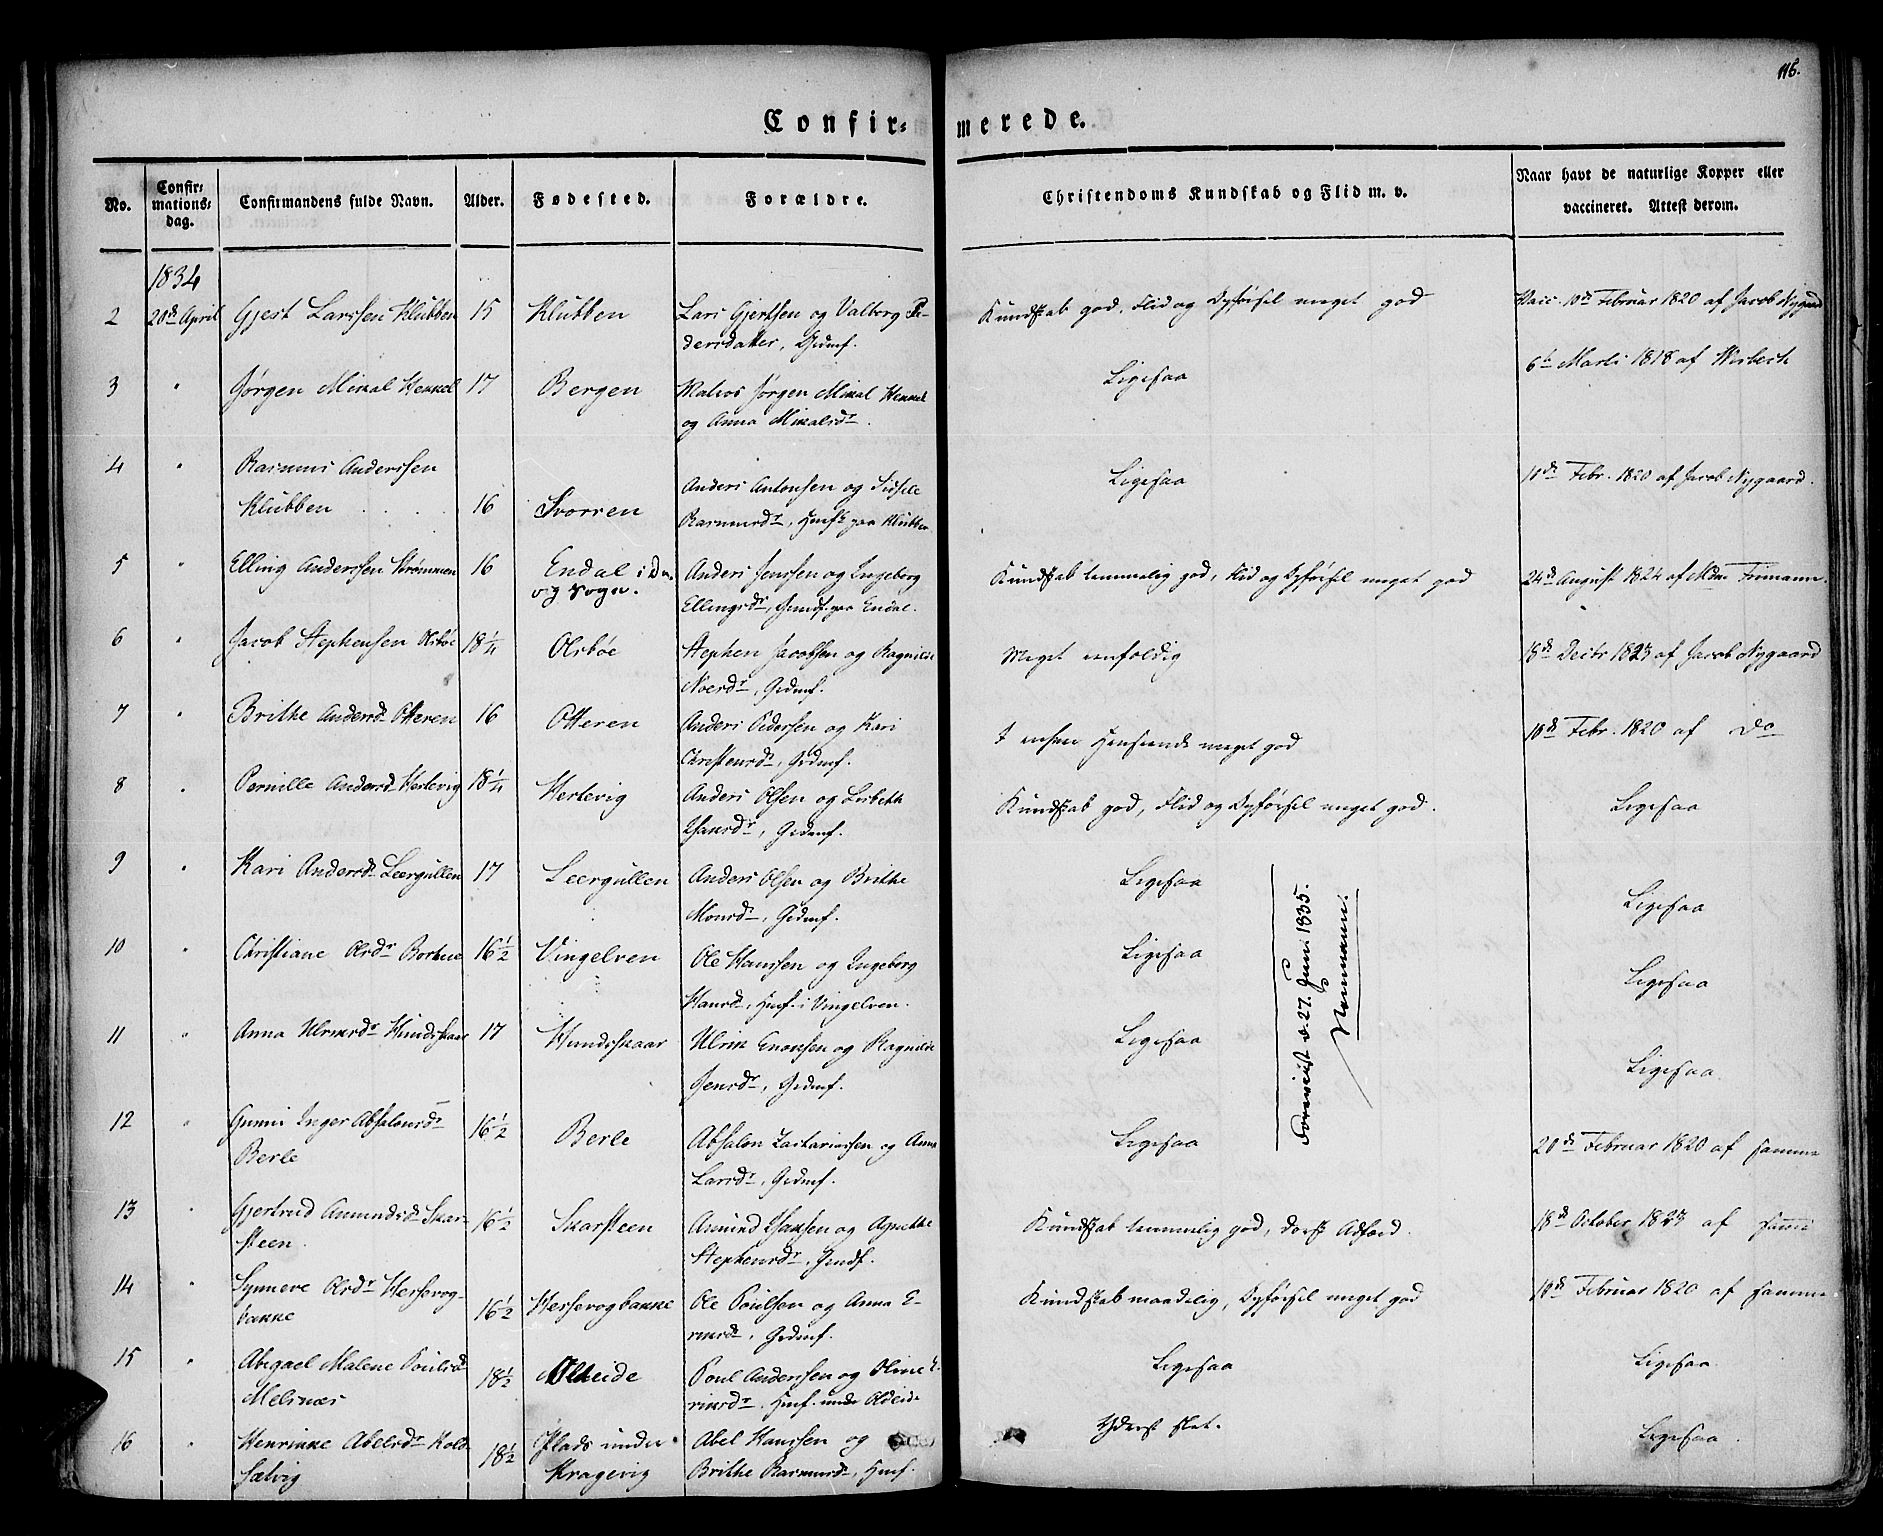 116.
Confir= merede.
No.
Confir=
mations=
dag.
Confirmandens fulde Navn.
Alder.
Fødested.
Forældre.
Christendoms Kundskab og Flid m. v.
Naar havt de naturlige Kopper eller
vaccineret. Attest derom.
1834
2 20de April Gjert Larssen Klubben 15 Klubben Lars Gjertsen og Valborg Pe-
dersdatter, Gdmf. Kundskab god, Flid og Opførsel meget god Vacc. 10de Februar 1820 af Jacob Nygaard
3 " Jørgen Mikal Henkel 17 Bergen Matros Jørgen Mikal Henkel
og Anna Mikalsdr. Ligesaa 6te Marti 1818 af Wisbech
4 " Rasmus Anderssen
Klubben 16 Svorren Anders Antonsen og Sidsele
Rasmusdr, Hmfk paa Klubben Ligesaa 10de Febr. 1820 af Jacob Nygaard.
5 " Elling Anderssen Strømmen 16 Endal i Da-
vig Sogn. Anders Jenssen og Ingeborg
Ellingsdr, Gmdf. paa Endal. Kundskab temmelig god, Flid og Opførsel meget god 24de August 1824 af Mdm Frimann.
6 " Jacob Stephensen Olsbøe 18¼ Olsbøe Stephen Jacobsen og Ragnilde
Noersdr, Gdmf. Meget eenfoldig 18de Decbr 1823 af Jacob Nygaard
7 " Brithe Andersdr Otteren 16 Otteren Anders Pedersen og Kari
Christensdr, Gdmf. I enhver Henseende meget god 10de Febr. 1820 af Do
8 " Pernille Andersdr Hestevig 18¼ Hestevig Anders Olsen og Lisbeth
Hansdr, Gdmf. Kundskab god, Flid og Opførsel meget god. Ligesaa
9 " Kari Andersdr Leergullen 17 Leergullen Anders Olsen og Brithe
Monsdr, Gdmf. Ligesaa Ligesaa
10 " Christiane Olsdr Bortne 16½ Vingelven Ole Hanssen og Ingeborg
Hansdr, Hmf. i Vingelven. Ligesaa Ligesaa
11 " Anna Ulriksdr Hundskaar 17 Hundskaar Ulrik Enonsen og Ragnilde
Jensdr, Gdmf. Ligesaa Ligesaa.
12 " Gunni Inger Absalonsdr
Berle 16½ Berle Absalon Zachariassen og Anna
Larsdr, Gdmf. Ligesaa 20de Februar 1820 af samme
13 " Gjertrud Amundsdr Skar-
steen. 16½ Skarsteen Amund Hansen og Agnethe
Stephensdr, Gmdf. Kundskab temmelig god, dorsk Adfærd. 18de October 1823 af samme
14 " Synneve Olsdr Hessevog-
bakke 16½ Hessevogbakke Ole Poulsen og Anna E-
riksdr, Gdmf. Kundskab maadelig, Opførsel meget god 10de Februar 1820 af samme.
15 " Abegael Malene Poulsdr
Melsnæs 18½ Oldeide Poul Anderssen og Oline E-
riksdr. Hmf. under Oldeide Ligesaa Ligesaa
16 " Henrikke Abelsdr Kold-
Sætvig 18½ Plads under
Kragevig Abel Hanssen og
Brithe Rasmusdr, Hmf. Yderst slet. Ligesaa.
Foreviist d. 27. Juni 1835.
Neumann.